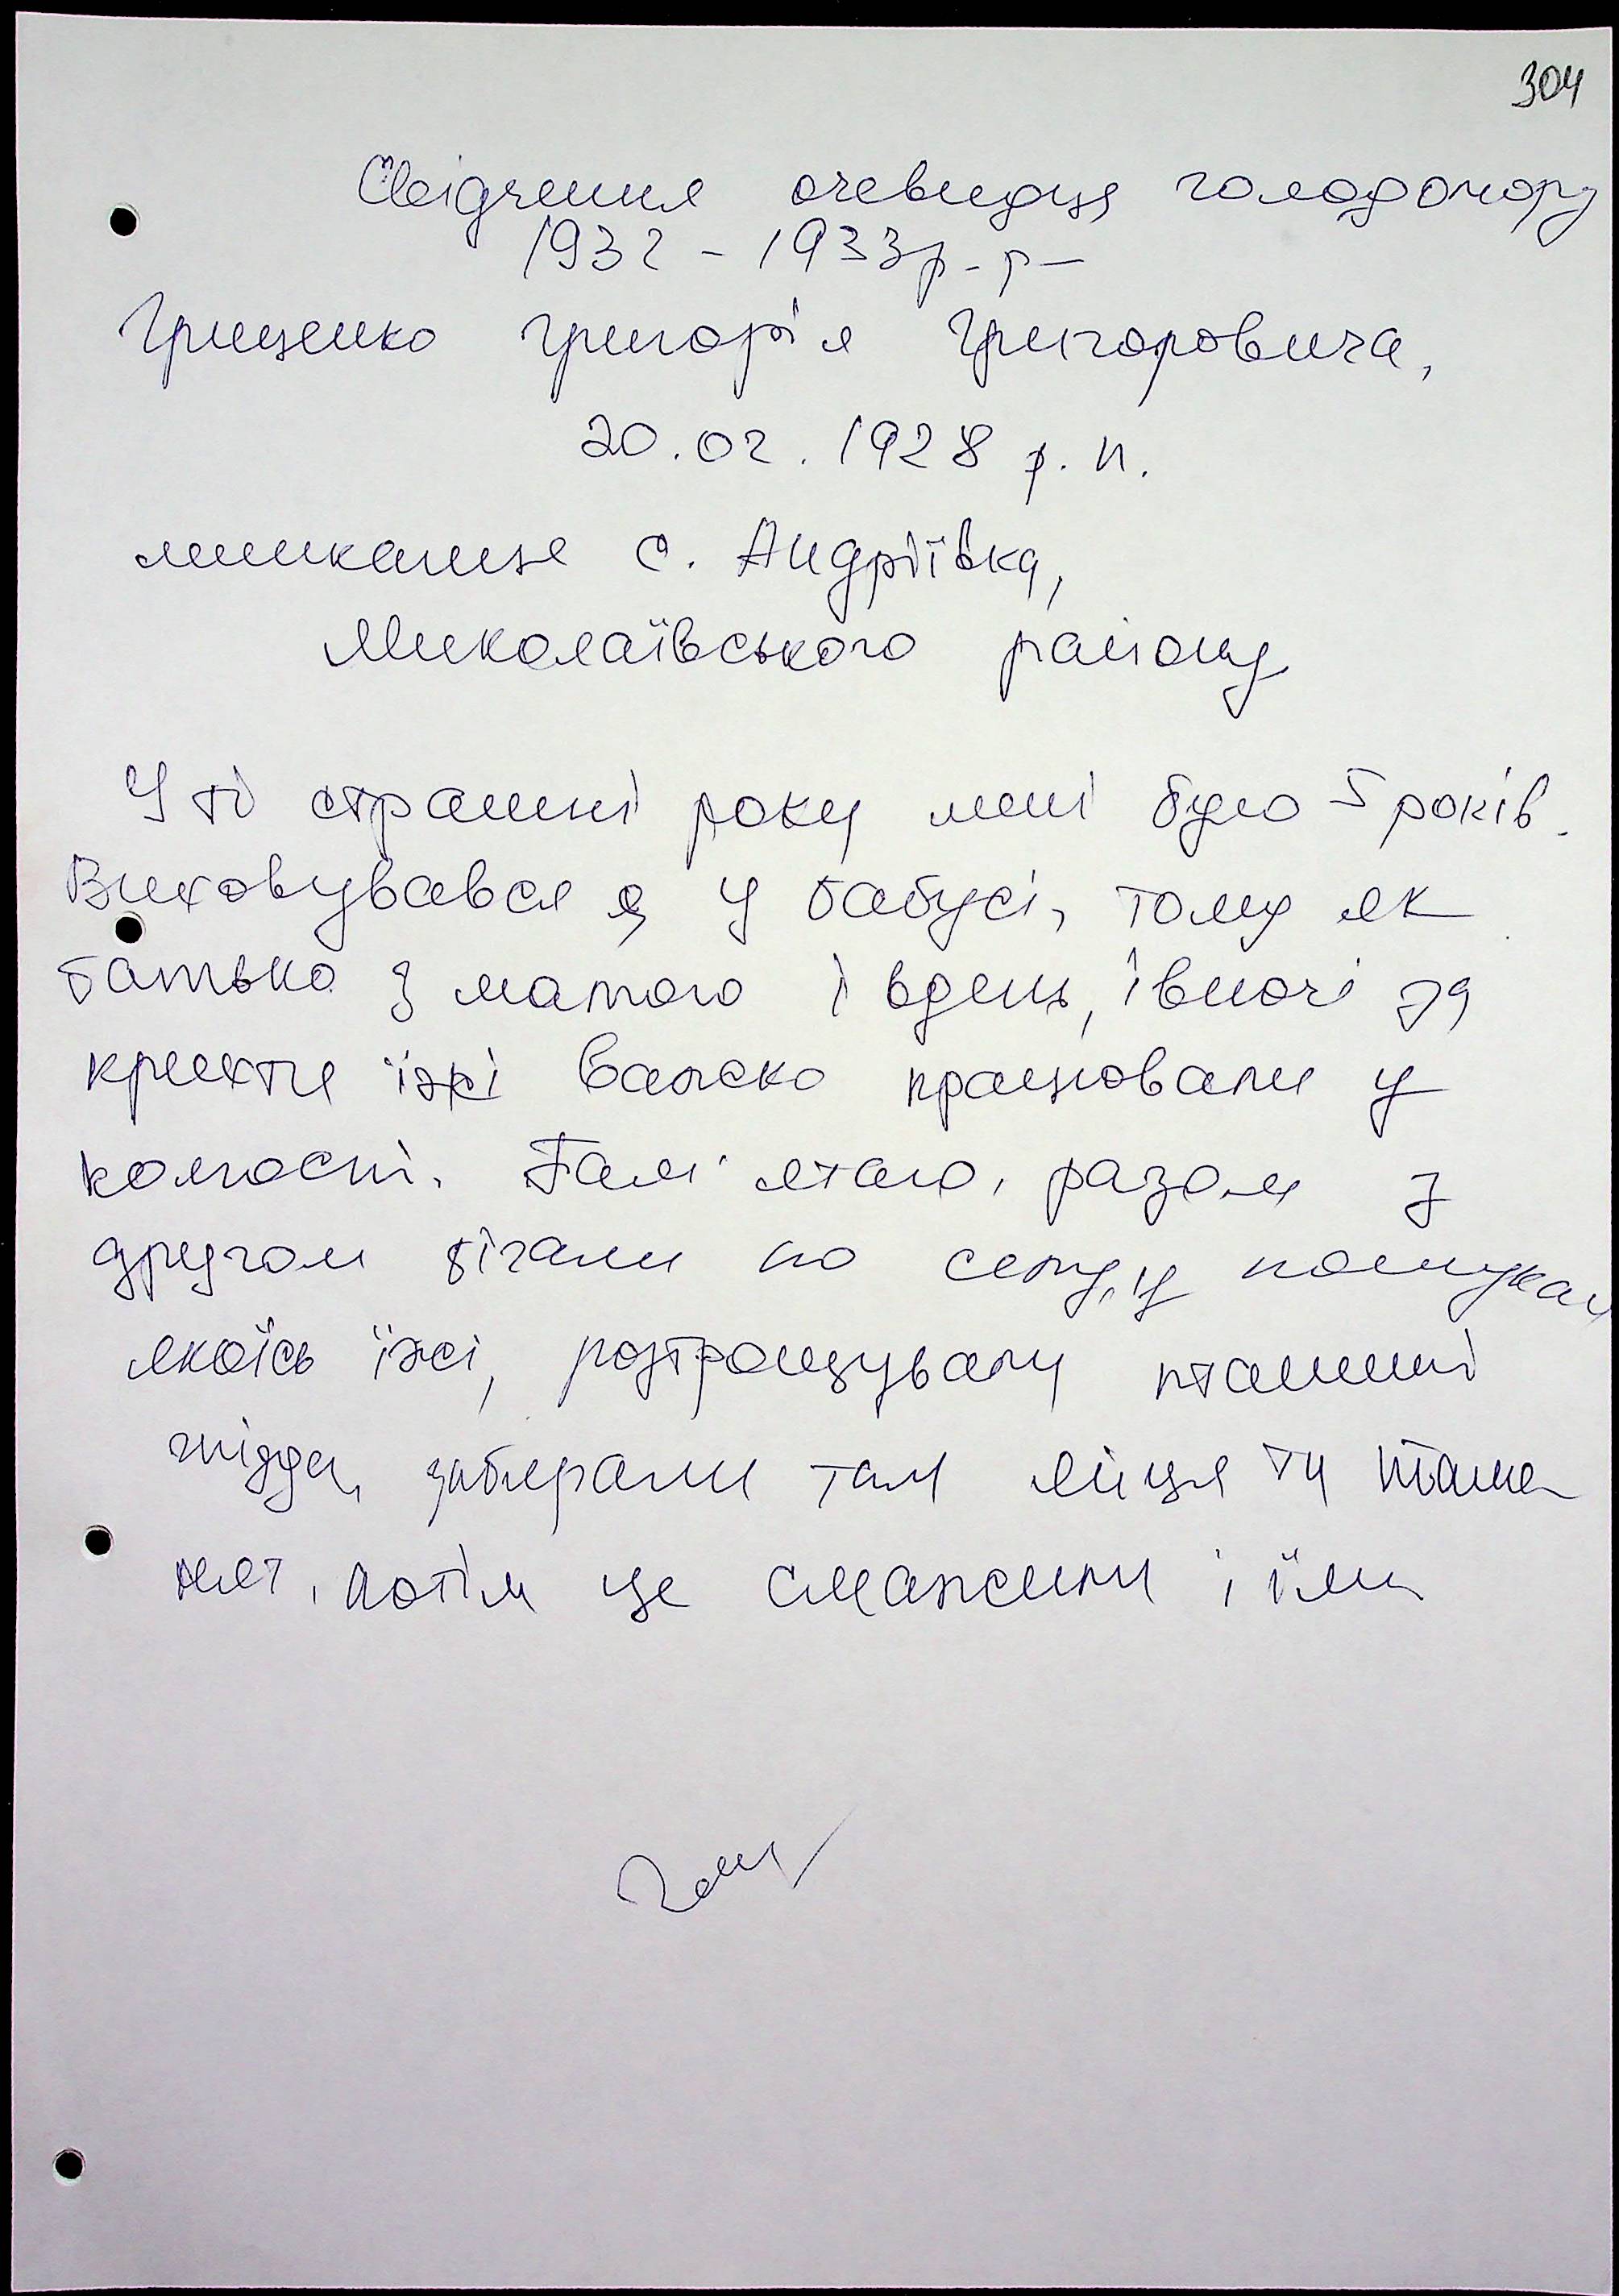 304
Свідчення очевидця голодомору
1932 - 1933р.р.
Грищенко Григорія Григоровича,
20.02.1928 р.н.
мешканця с. Андріївка,
Миколаївського району
У ті страшні роки мені було 5 років.
Виховувався я у бабусі, тому як
батько з матірю і вдень, і вночі за
крихти їжі важко працювали у
колгоспі. Пам'ятаю, разом з
другом бігали по селу, у пошуках
якоїсь їжі, розтрощували пташині
гнізда, забирали там яйця та пташе
нят, потім це смажили і їли